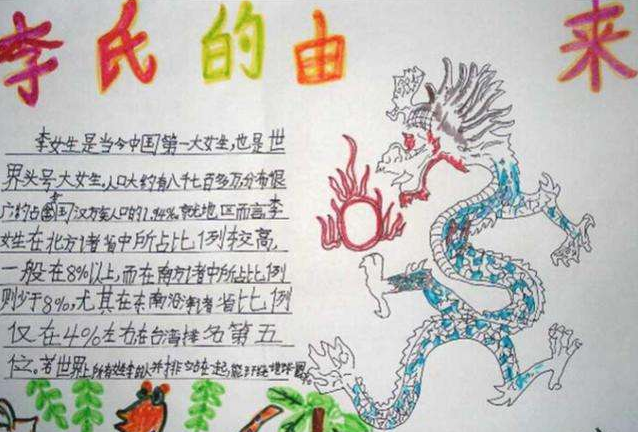 李氏的由来
李女生是当今中国第一大女生,也是世
界头号大女生,人口大约有八千七百多万,分布很
广,约占全国汉方矣人口的7.94%。就地区而言,李
女生在北方诸省中所占比例较高,
一般在8%以上,而在南方诸省中所占比例
则少于8%,尤其在东南沿海诸省比例
仅在4%左右,在台湾排名第五
位。若世界上所有姓李的人并排站在一起,能